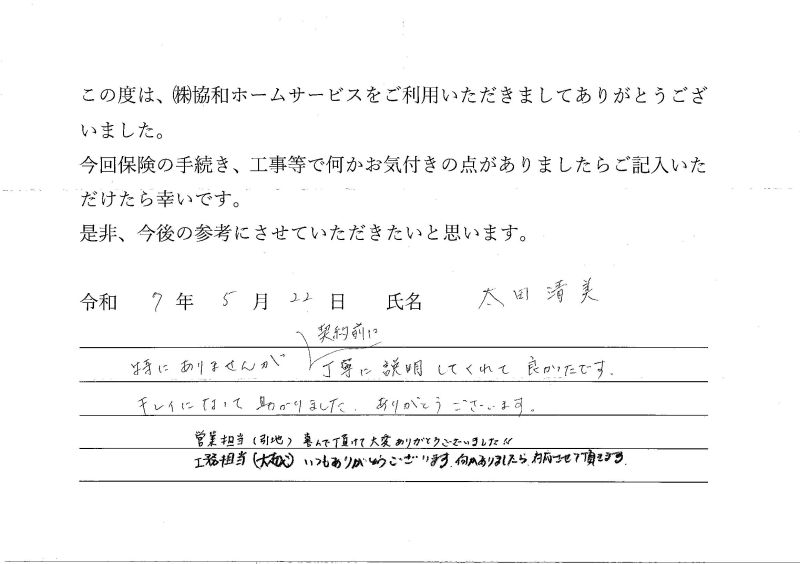 この度は、㈱協和ホームサービスをご利用いただきましてありがとうござ
いました。
今回保険の手続き、工事等で何かお気付きの点がありましたらご記入いた
だけたら幸いです。
是非、今後の参考にさせていただきたいと思います。
令和 7 年 5 月 22 日 氏名 太田清美
契約前に
特にありませんが 丁寧に説明してくれて良かたです.
キレイになって助かりました. ありがとうございます.
営業担当(引地) 喜んで頂けて大変ありがとうございました!!
工務担当( ) いつもありがとうございます. 何かありましたら対応させて頂きます.